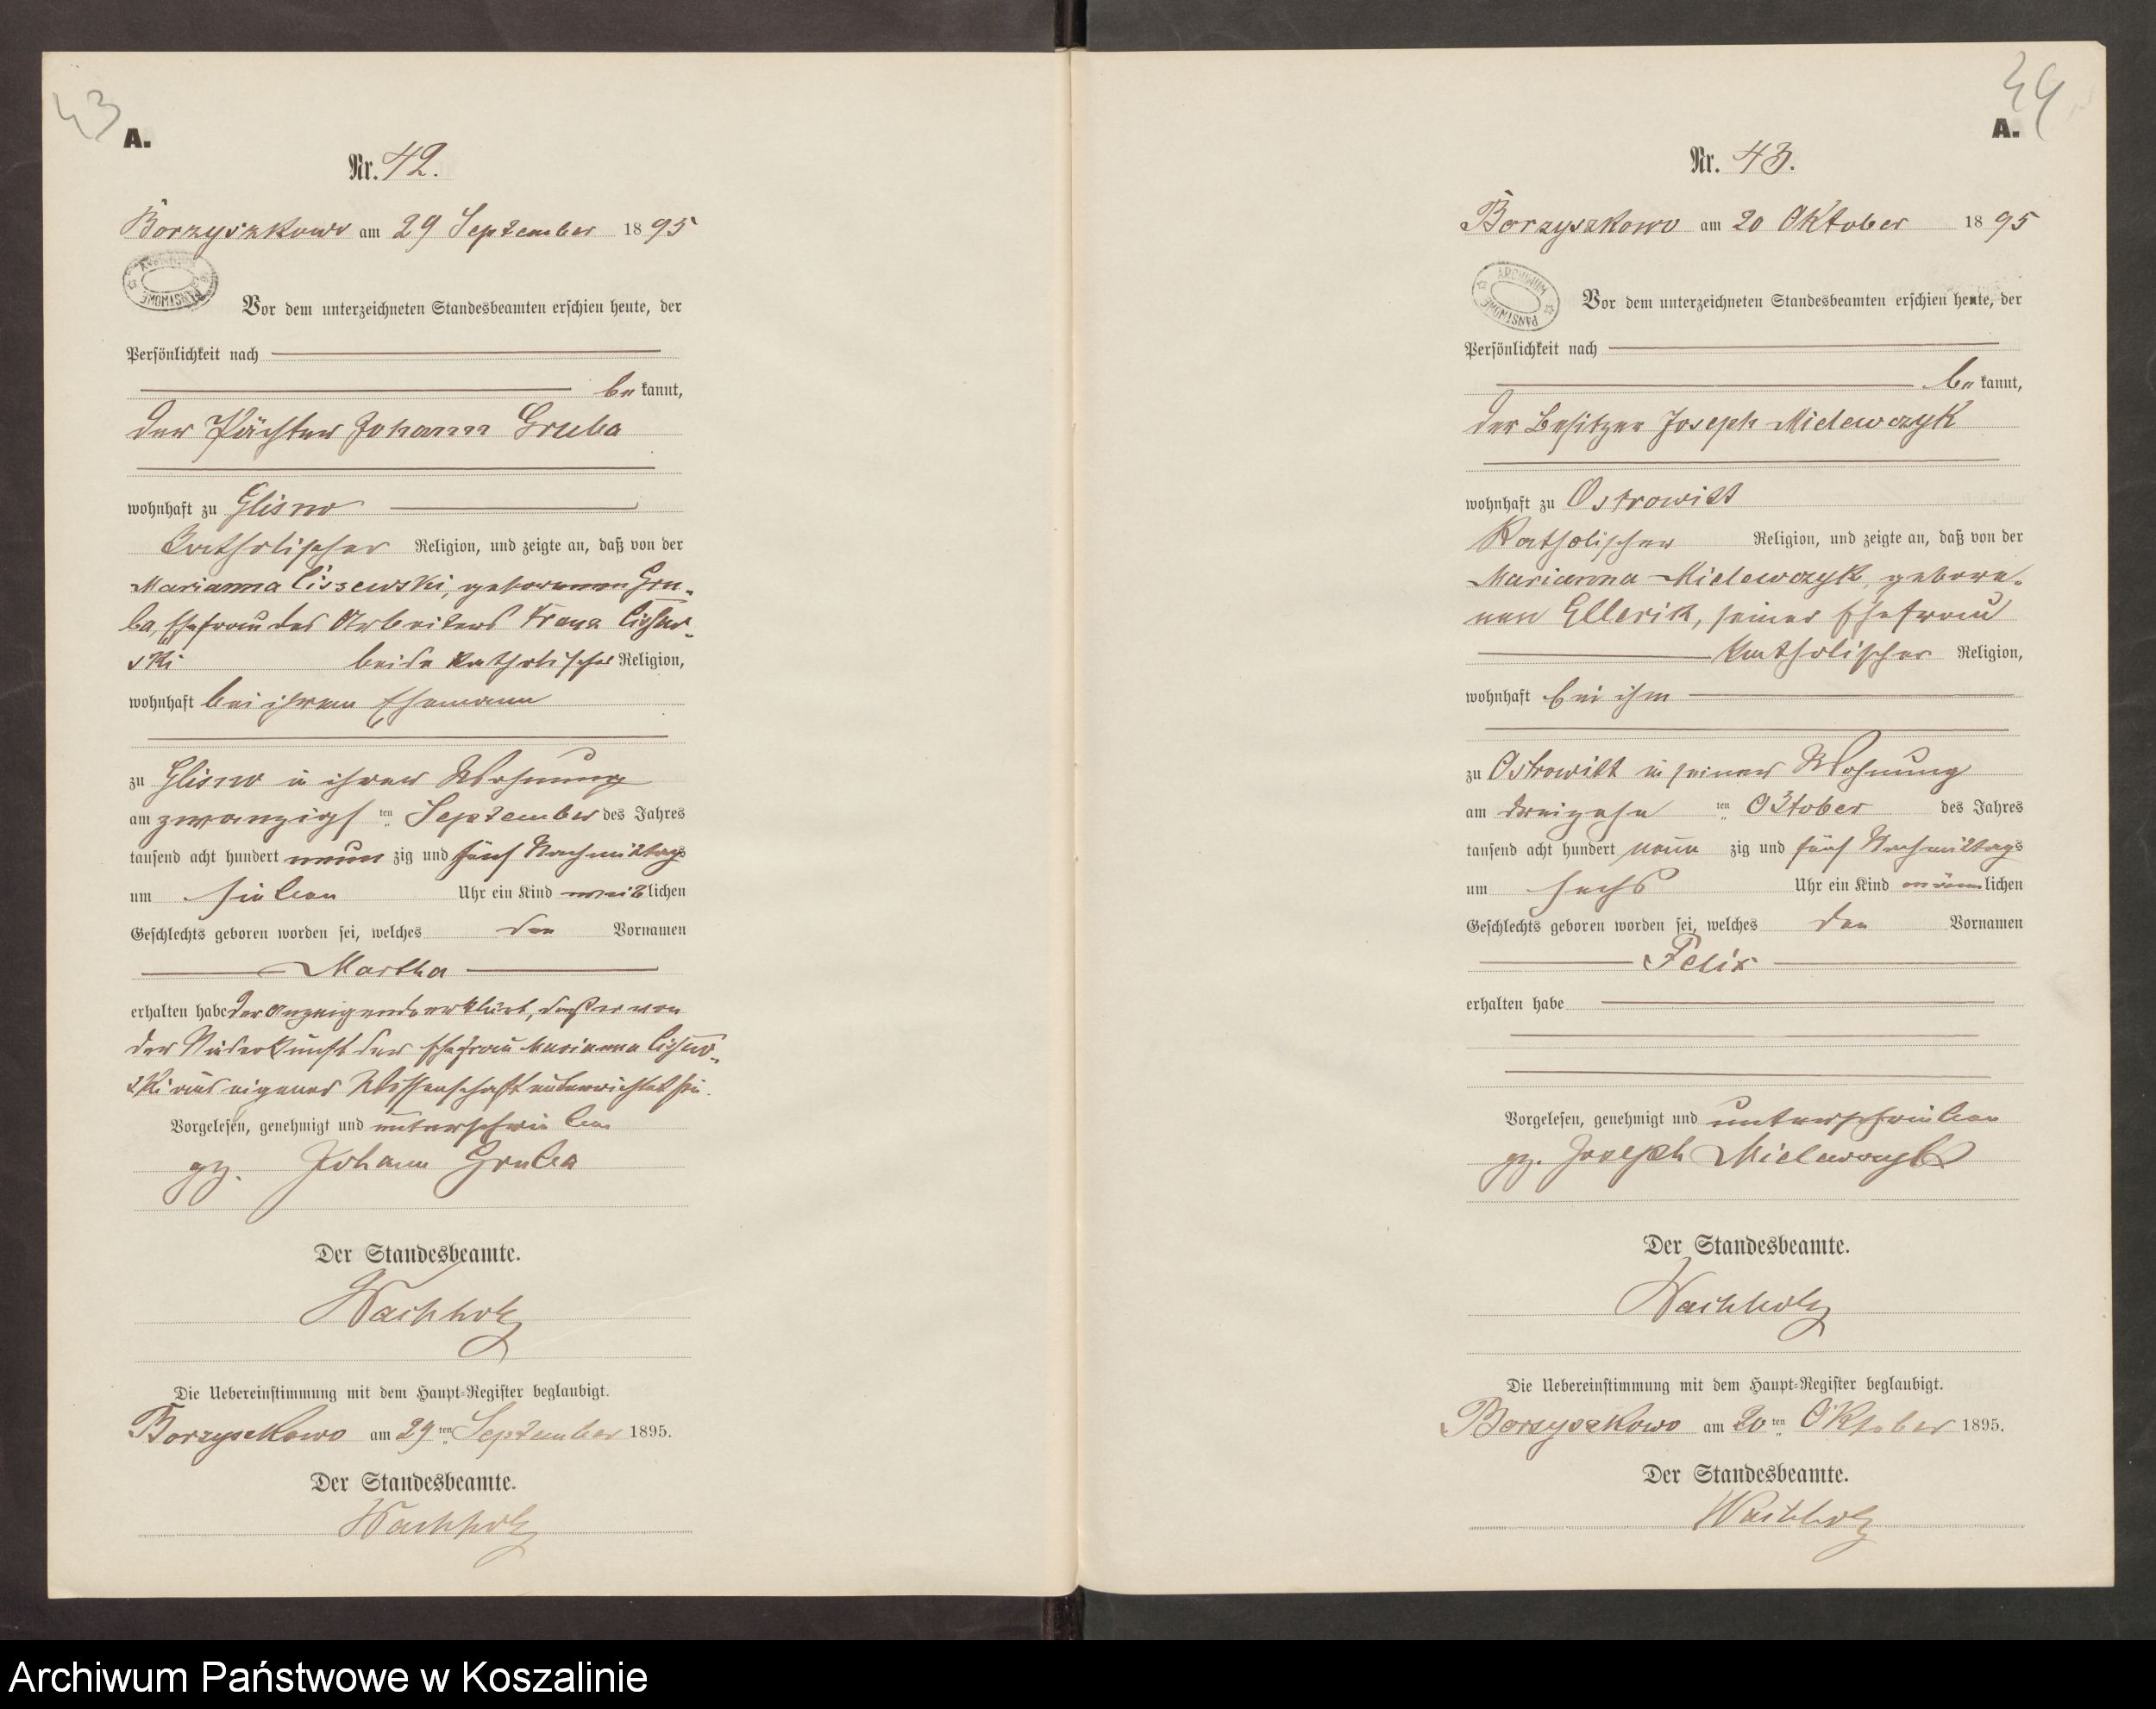 43
A.
Nr. 42.
Borzyszkowo am 29 September 1895
ARCHIWUM PAŃSTWOWE
Vor dem unterzeichneten Standesbeamten erschien heute, der
Persönlichkeit nach
be kannt,
der Pächter Johann Gruba
wohnhaft zu Glisno
katholischer Religion, und zeigte an, daß von der
Marianna Cissewski, geborenen Gru-
ba, Ehefrau des Arbeiters Franz Cissew-
ski beide katholischer Religion,
wohnhaft bei ihrem Ehemann
zu Glisno in ihrer Wohnung
am zwanzigsten September des Jahres
tausend acht hundert neun zig und fünf Nachmittags
um sieben Uhr ein Kind weiblichen
Geschlechts geboren worden sei, welches den Vornamen
Martha
erhalten habe der Anzeigende erklärt, daß er von
der Niederkunft der Ehefrau Marianna Cissew-
ski aus eigener Wissenschaft unterrichtet sei.
Vorgelesen, genehmigt und unterschrieben
gz. Johann Gruba
Der Standesbeamte.
Wachholz
Die Uebereinstimmung mit dem Haupt-Register beglaubigt.
Borzyszkowo am 29 ten September 1895.
Der Standesbeamte.
Wachholz
44
A.
Nr. 43.
Borzyszkowo am 20 Oktober 1895
ARCHIWUM PAŃSTWOWE
Vor dem unterzeichneten Standesbeamten erschien heute, der
Persönlichkeit nach
be kannt,
der Besitzer Joseph Mielewczyk
wohnhaft zu Ostrowitt
katholischer Religion, und zeigte an, daß von der
Marianna Mielewczyk, gebore-
nen Ellerik, seiner Ehefrau
katholischer Religion,
wohnhaft bei ihm
zu Ostrowitt in seiner Wohnung
am dreizehn ten Oktober des Jahres
tausend acht hundert neun zig und fünf Nachmittags
um sechs Uhr ein Kind männlichen
Geschlechts geboren worden sei, welches den Vornamen
Felix
erhalten habe
Vorgelesen, genehmigt und unterschrieben
gz. Joseph Mielewczyk
Der Standesbeamte.
Wachholz
Die Uebereinstimmung mit dem Haupt-Register beglaubigt.
Borzyszkowo am 20 ten Oktober 1895.
Der Standesbeamte.
Wachholz
Archiwum Państwowe w Koszalinie